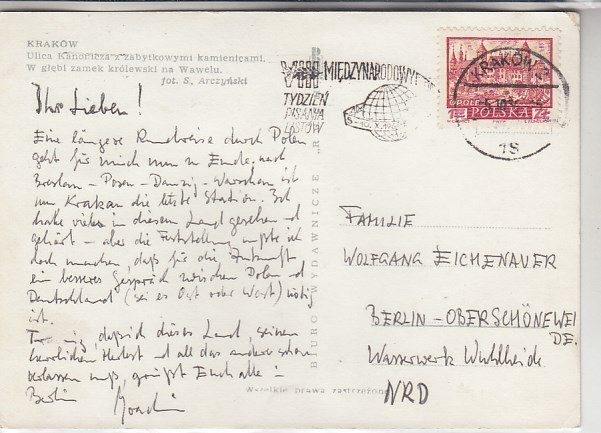 KRAKÓW
Ulica Kanonicza z zabytkowymi kamienicami.
W głębi zamek królewski na Wawelu.
fot. S. Arczyński
VIII MIĘDZYNARODOWY
TYDZIEŃ
PISANIA
LISTÓW
KRAKÓW
18
OPOLE
POLSKA
Ihr Lieben!
Eine längere Rundreise durch Polen
geht für mich nun zu Ende, nach
Breslau – Posen – Danzig – Warschau ist
nun Krakau die letzte Station. Ich
habe vieles in diesem Land gesehen und
gehört – aber die Feststellung mußte ich
doch machen, daß für die Zukunft
ein besseres Gespräch zwischen Polen und
Deutschland (sei es Ost oder West) nötig
ist.
daß ich dieses Land, seinen
herrlichen Herbst und all das andere schon
verlassen muß, grüßt Euch alle in
Berlin Joachim
BIURO WYDAWNICZE „R
FAMILIE
WOLFGANG EICHENAUER
BERLIN-OBERSCHÖNEWEI
DE.
Wasserwerk Wuhlheide
NRD
Wszelkie prawa zastrzeżone